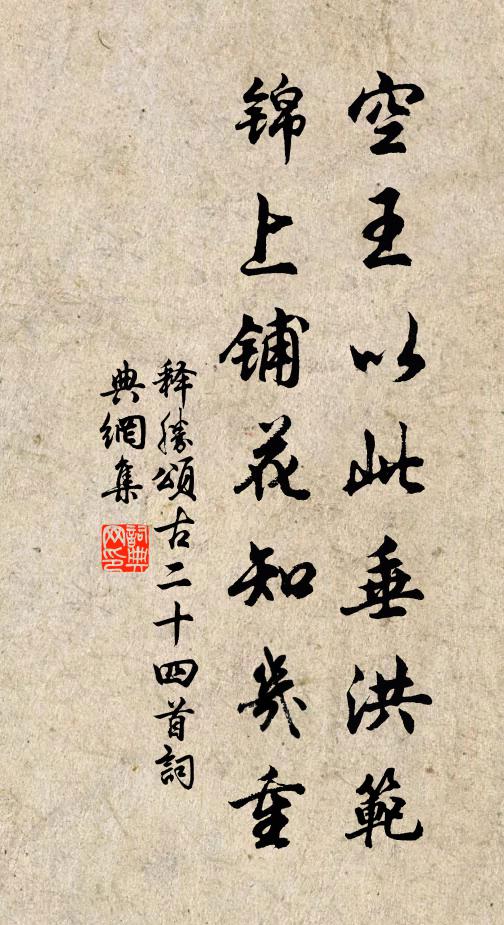 空王以此垂洪範
錦上鋪花知幾重
释勝頌古二十四首詞
典網集
詞典
网印